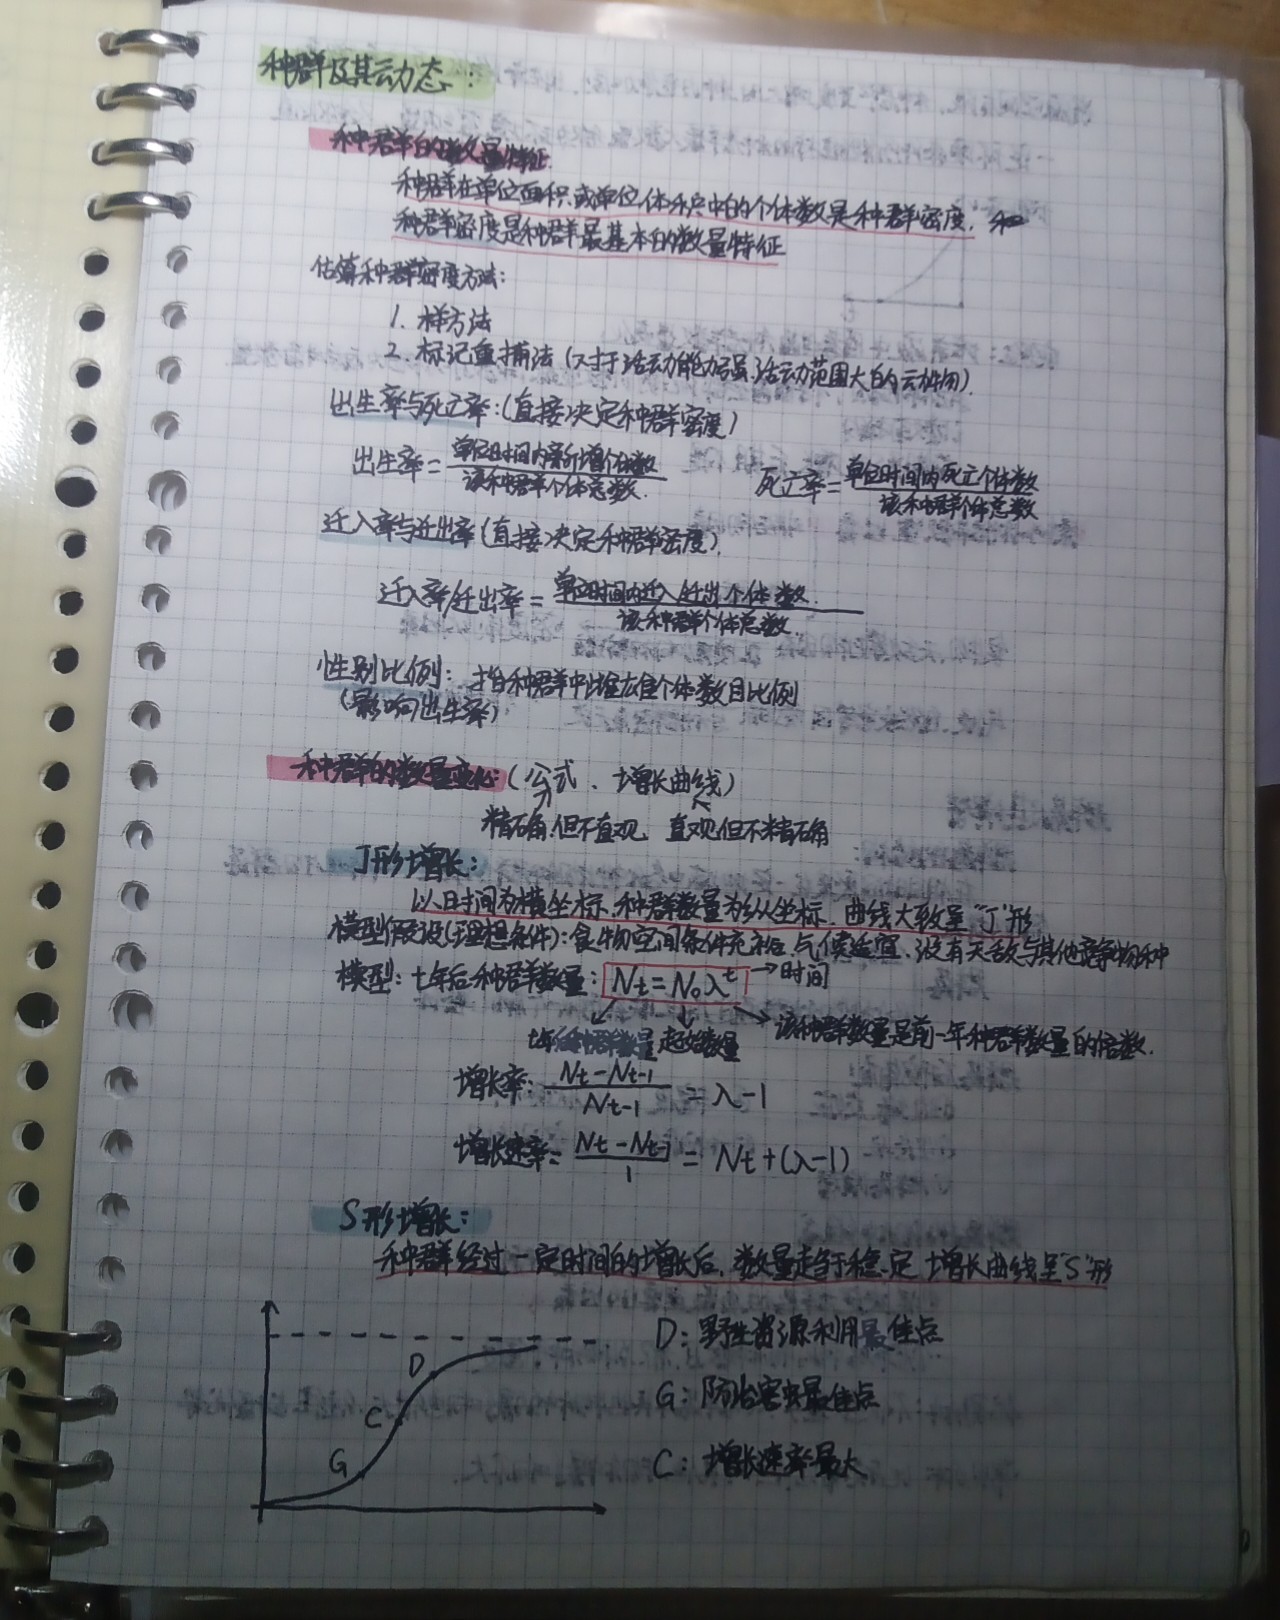 种群及其动态：
种群的数量特征.
种群在单位面积或单位体积中的个体数是种群密度.
种群密度是种群最基本的数量特征
估算种群密度方法：
1. 样方法
2. 标记重捕法（对于活动能力强、活动范围大的动物）
出生率与死亡率：（直接决定种群密度）
出生率 = 单位时间内新增个体数 / 该种群个体总数. 死亡率 = 单位时间内死亡个体数 / 该种群个体总数
迁入率与迁出率（直接决定种群密度）.
迁入率/迁出率 = 单位时间内迁入/迁出个体数. / 该种群个体总数.
性别比例：指种群中雌雄个体数目比例
（影响出生率）
种群的数量变化：（公式、增长曲线）
精确但不直观 直观但不精确
J形增长：
以时间为横坐标、种群数量为纵坐标、曲线大致呈“J”形
模型假设（理想条件）：食物空间条件充裕、气候适宜、没有天敌与其他竞争物种
模型：t年后种群数量：Nt = N₀λᵗ → 时间
t年后种群数量 起始数量 该种群数量是前一年种群数量的倍数.
增长率：(Nt − Nt-1) / Nt-1 = λ − 1
增长速率 = (Nt − Nt-1) / 1 = Nt + (λ − 1)
S形增长：
种群经过一定时间的增长后，数量趋于稳定 增长曲线呈“S”形
D：野生资源利用最佳点
D
G：防治害虫最佳点
C
C：增长速率最大
G